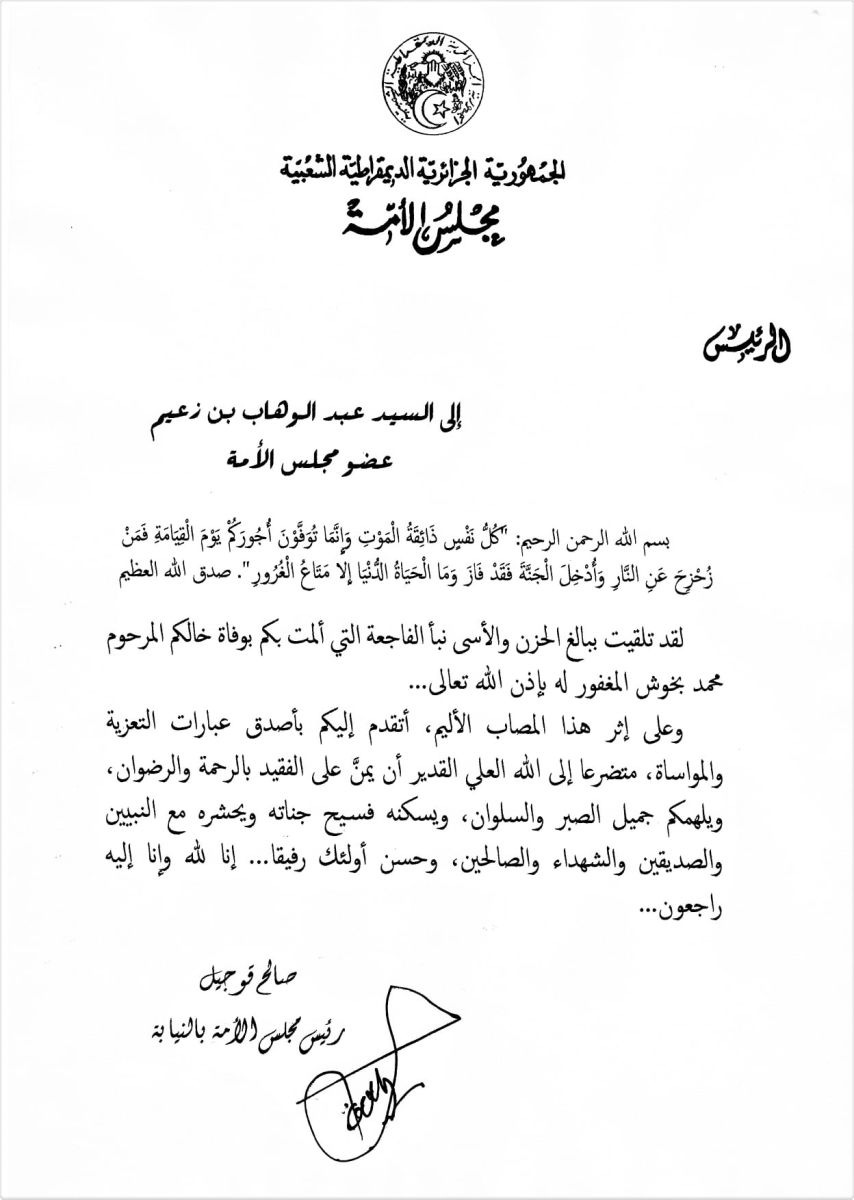 الجمهورية الجزائرية الديمقراطية الشعبية
الجمهُوريّة الجزائريّة الديمقراطيّة الشّعْبيّة
مجْلسُ الأمّة
الرئيس
إلى السيد عبد الوهاب بن زعيم
عضو مجلس الأمة
بسم الله الرحمن الرحيم: "كُلُّ نَفْسٍ ذَائِقَةُ الْمَوْتِ وَإِنَّمَا تُوَفَّوْنَ أُجُورَكُمْ يَوْمَ الْقِيَامَةِ فَمَنْ
زُحْزِحَ عَنِ النَّارِ وَأُدْخِلَ الْجَنَّةَ فَقَدْ فَازَ وَمَا الْحَيَاةُ الدُّنْيَا إِلَّا مَتَاعُ الْغُرُورِ". صدق الله العظيم
لقد تلقيت ببالغ الحزن والأسى نبأ الفاجعة التي ألمت بكم بوفاة خالكم المرحوم
محمد بخوش المغفور له بإذن الله تعالى...
وعلى إثر هذا المصاب الأليم، أتقدم إليكم بأصدق عبارات التعزية
والمواساة، متضرعا إلى الله العلي القدير أن يمنَّ على الفقيد بالرحمة والرضوان،
ويلهمكم جميل الصبر والسلوان، ويسكنه فسيح جناته ويحشره مع النبيين
والصديقين والشهداء والصالحين، وحسن أولئك رفيقا... إنا لله وإنا إليه
راجعون...
صالح قوجيل
رئيس مجلس الأمة بالنيابة